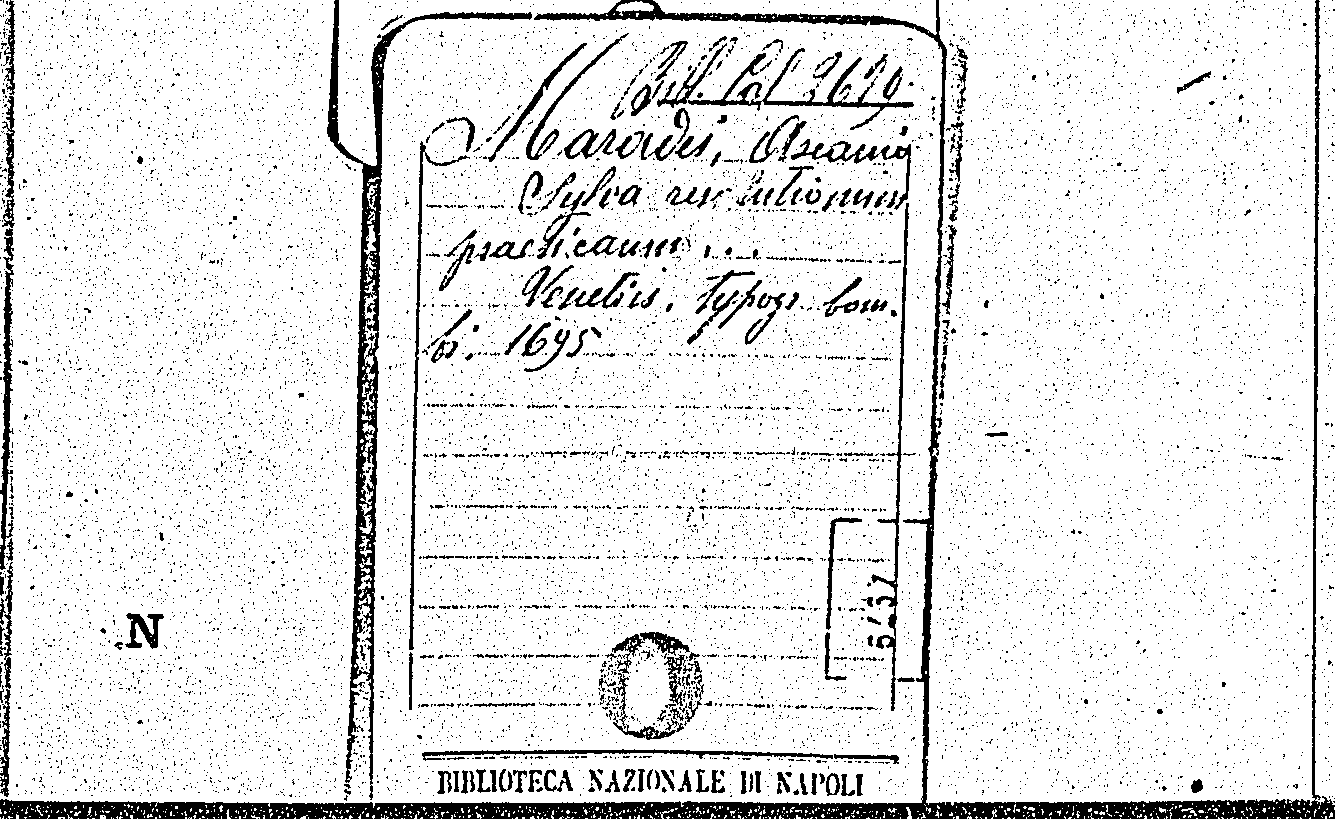 Bibl. Cal 2639.
Ascanio
Sylva resolutionum
practicarum ...
Venetiis. Typogr. bom.
bi. 1695
5457
N
BIBLIOTECA NAZIONALE DI NAPOLI